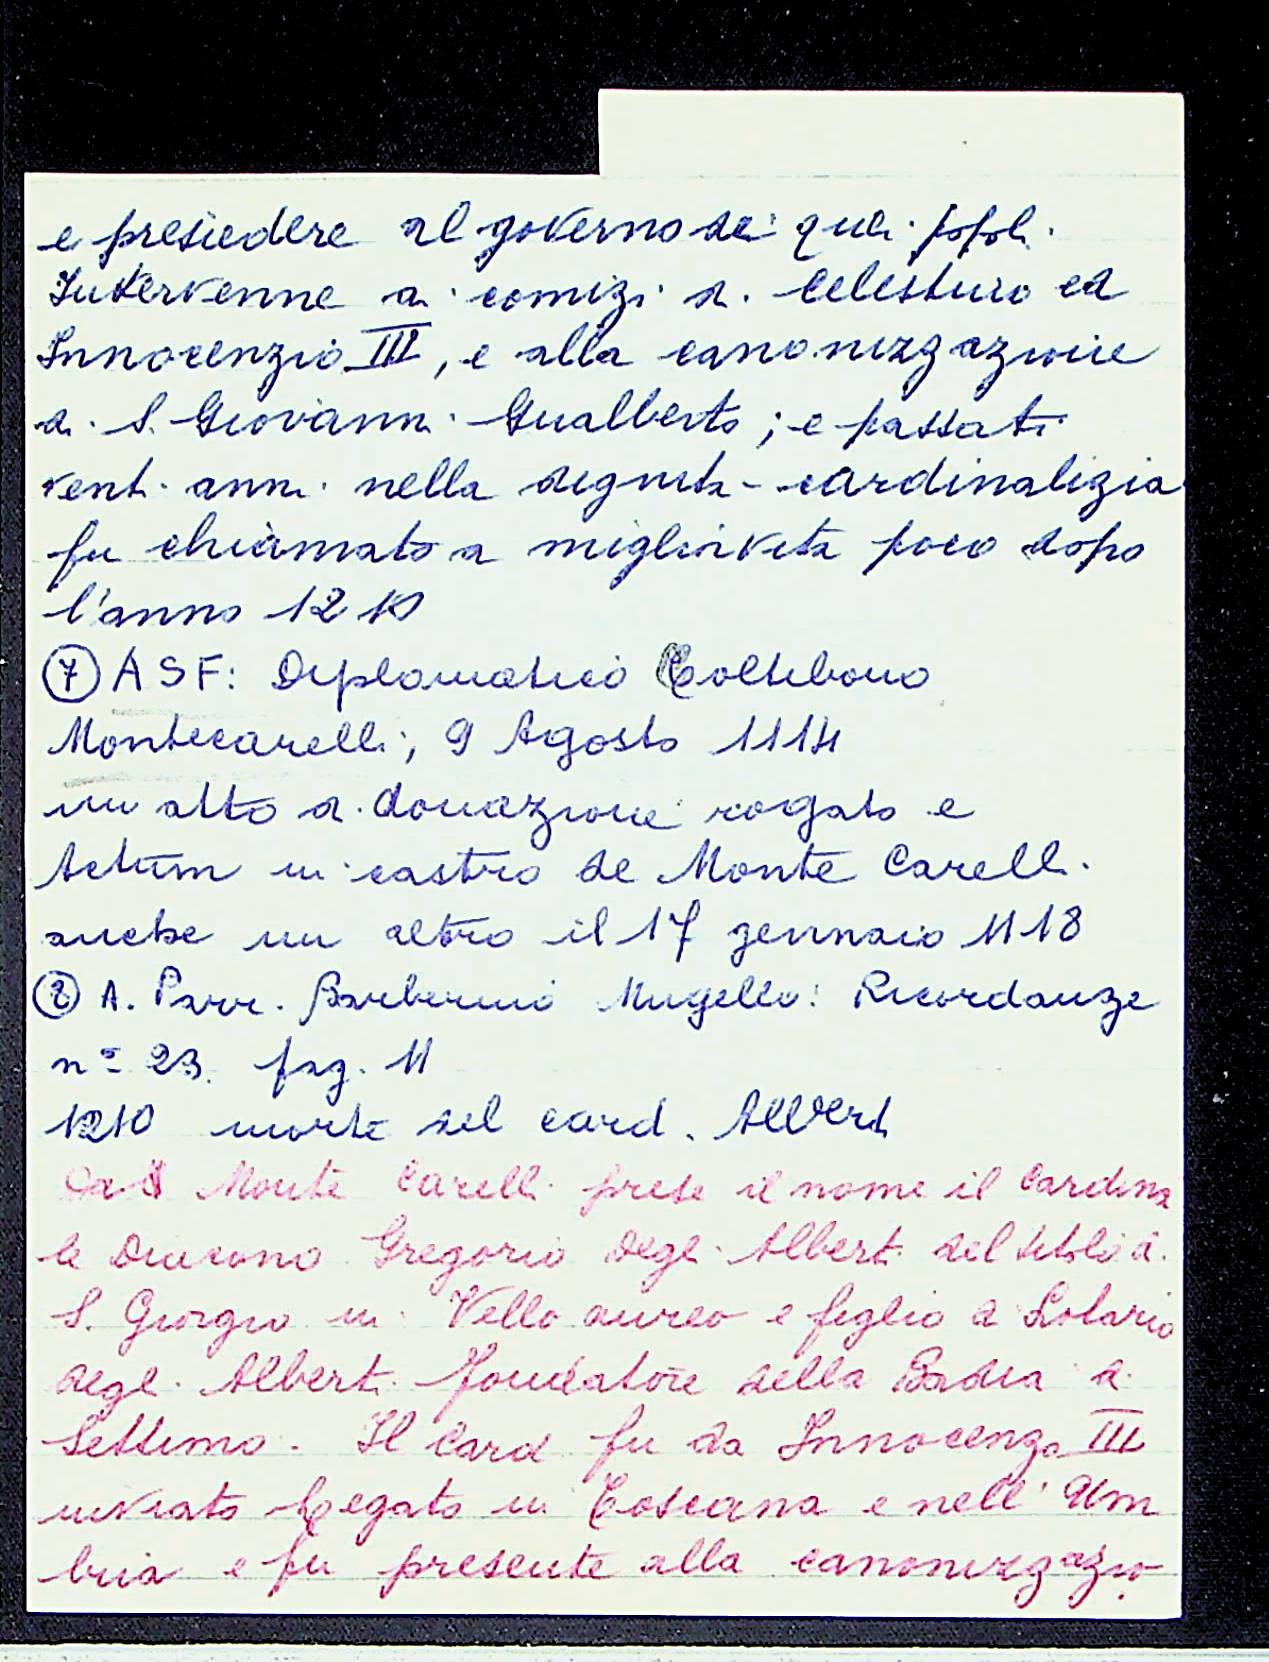 e presiedere al governo dei quei popoli.
Intervenne ai comizi di Celestino ed
Innocenzio III, e alla canonizzazione
di S. Giovanni Gualberto; e passati
venti anni nella dignità cardinalizia
fu chiamato a miglior vita poco dopo
l'anno 1210
⑦ ASF: Diplomatico Coltibono
Montecarelli, 9 Agosto 1114
un atto di donazione rogato e
Actum in castro de Monte Carelli
anche un altro il 17 gennaio 1118
⑧ A. Parr. Barberino Mugello: Ricordanze
n° 23. pag. 11
1210 morte del card. Alberti
Da Monte Carelli prese il nome il Cardina
le Diacono Gregorio degli Alberti del titolo di
S. Giorgio in Vello aureo e figlio di Lotario
degli Alberti fondatore della Badia di
Settimo. Il Card fu da Innocenzo III
inviato Legato in Toscana e nell'Um
bria e fu presente alla canonizzazio